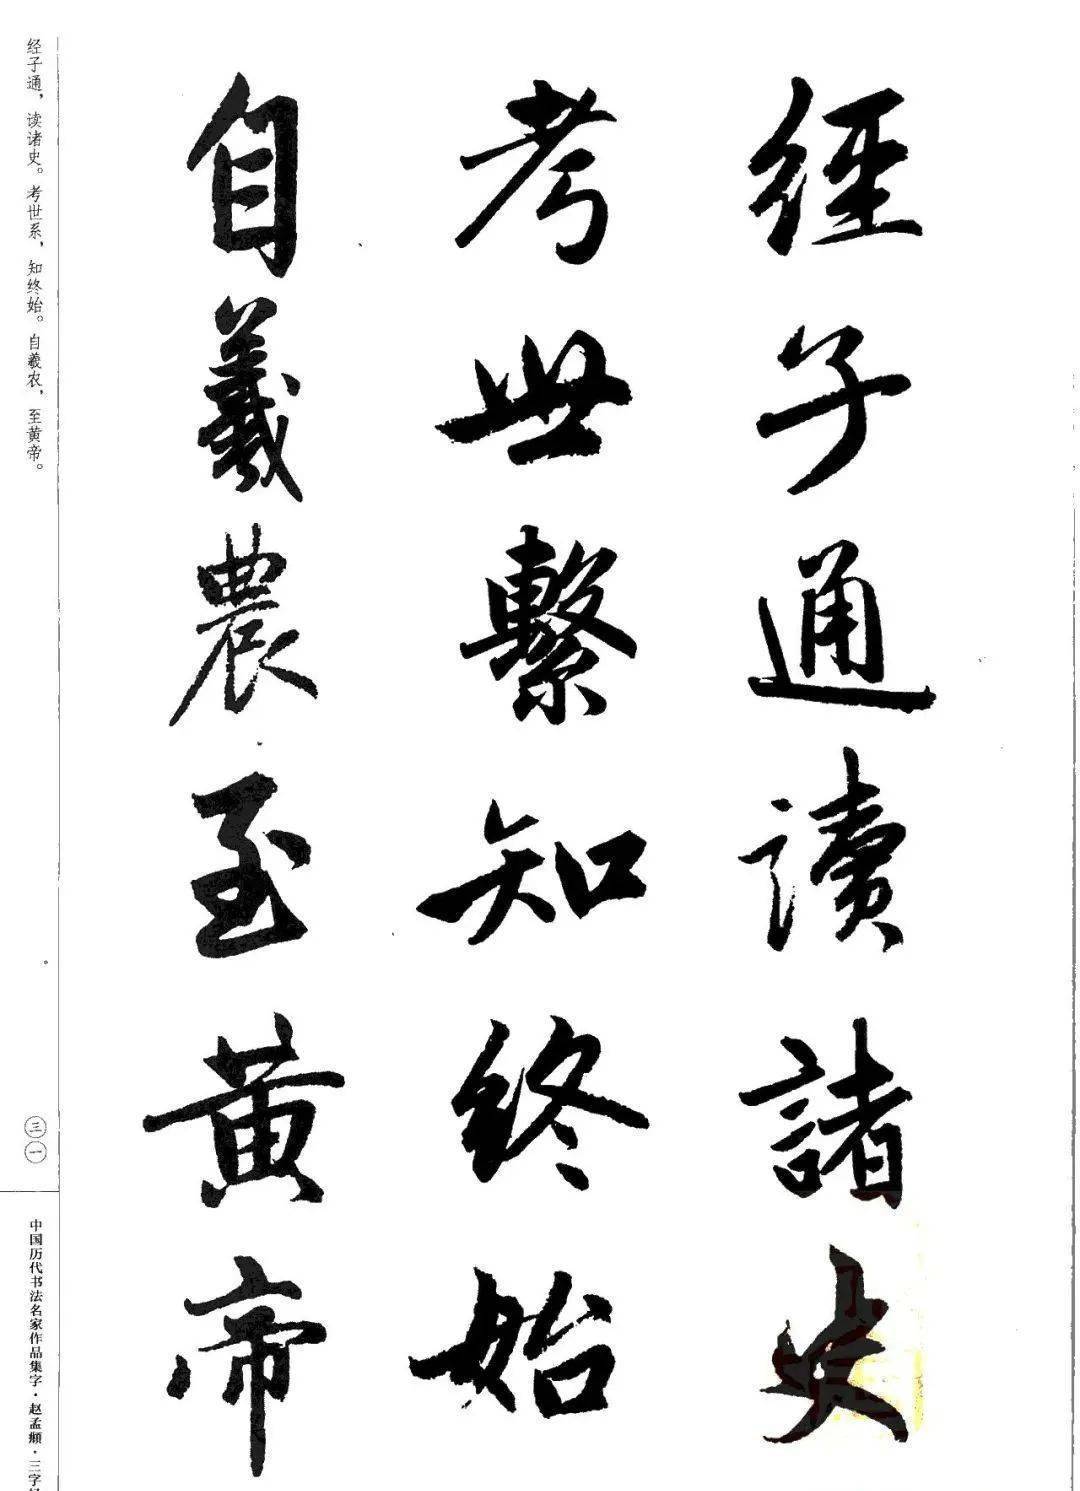 經子通讀諸史
考世繫知終始
自羲農至黃帝
经子通，读诸史。考世系，知终始。自羲农，至黄帝。
三一
中国历代书法名家作品集字·赵孟頫·三字经